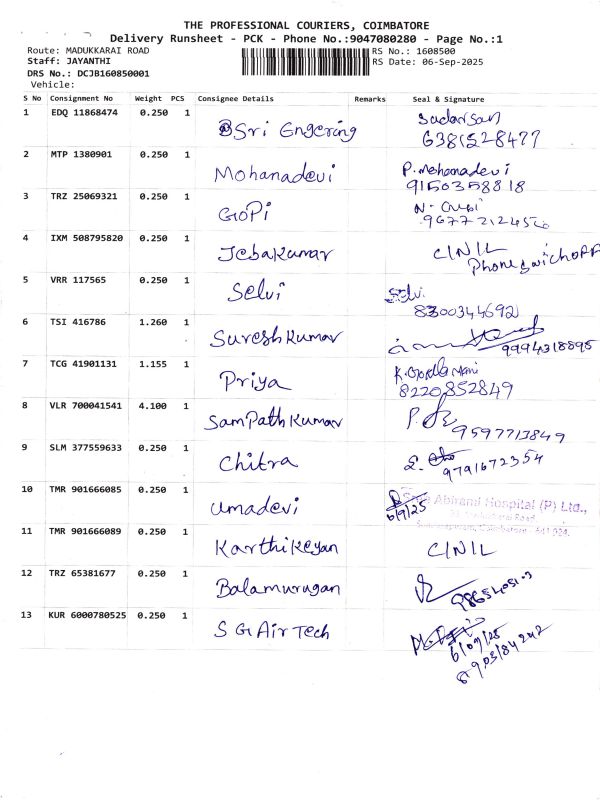 THE PROFESSIONAL COURIERS, COIMBATORE
Delivery Runsheet - PCK - Phone No.:9047080280 - Page No.:1
Route: MADUKKARAI ROAD RS No.: 1608500
Staff: JAYANTHI RS Date: 06-Sep-2025
DRS No.: DCJB160850001
Vehicle:
S No Consignment No Weight PCS Consignee Details Remarks Seal & Signature
1 EDQ 11868474 0.250 1 Sri Engering Sudarsan
6381528477
2 MTP 1380901 0.250 1 Mohanadevi P. Mohanadevi
9150358818
3 TRZ 25069321 0.250 1 GOPi
4 IXM 508795820 0.250 1 Jebakumar C/N/L
Phone switchoff
5 VRR 117565 0.250 1 Selvi Selvi
8300344692
6 TSI 416786 1.260 1 Suresh Kumar
9994318895
7 TCG 41901131 1.155 1 Priya
8220852849
8 VLR 700041541 4.100 1 Sampath Kumar
9597713849
9 SLM 377559633 0.250 1 Chitra
9791672354
10 TMR 901666085 0.250 1 umadevi Abirami Hospital (P) Ltd.,
6/9/25
11 TMR 901666089 0.250 1 Karthikeyan C/N/L
12 TRZ 65381677 0.250 1 Balamurugan
13 KUR 6000780525 0.250 1 S G Air Tech
6/09/25